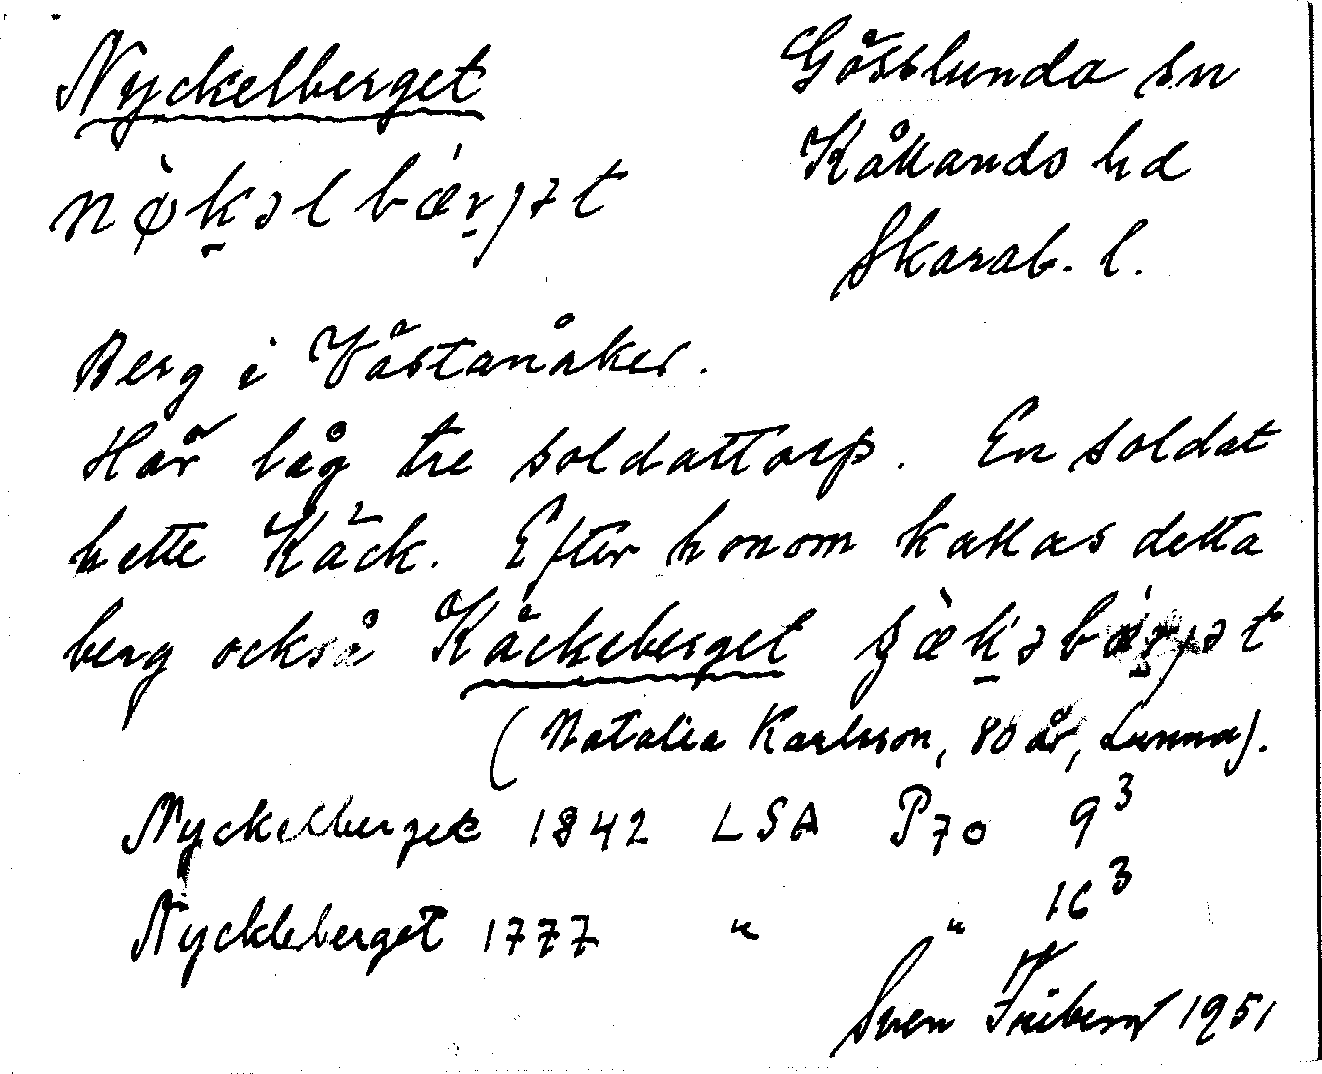 Nyckelberget
Gösslunda sn
Kållands hd
Skarab. l.
nø̀kəlbǽrjət
Berg i Västanåker.
Här låg tre soldattorp. En soldat
hette Käck. Efter honom kallas detta
berg också Käckeberget
(Natalia Karlsson, 80 år, Lunna).
Nyckelberget 1842 LSA P70 9³
Nyckleberget 1777 " " 16³
Sven Friberg 1951